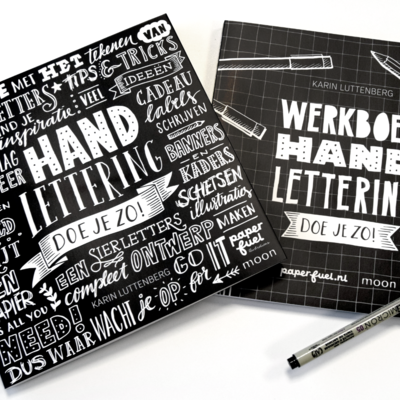 MET HET tekenen VAN
LETTERS TIPS & TRICKS
VEEL IDEEËN
inspiratie!
CADEAU
labels
HAND
SCHRIJVEN
LETTERING
BANNERS
EN
KADERS
DOE JE ZO!
SCHETSEN
illustraties
EEN SIERLETTERS
compleet ONTWERP MAKEN
KARIN LUTTENBERG
GO for IT
paper
fuel
moon
IS ALL YOU
NEED!
DUS WAAR WACHT je OP
KARIN LUTTENBERG
WERKBOE
HAND
LETTERING
DOE JE ZO!
paperfuel.nl
moon
MICRON